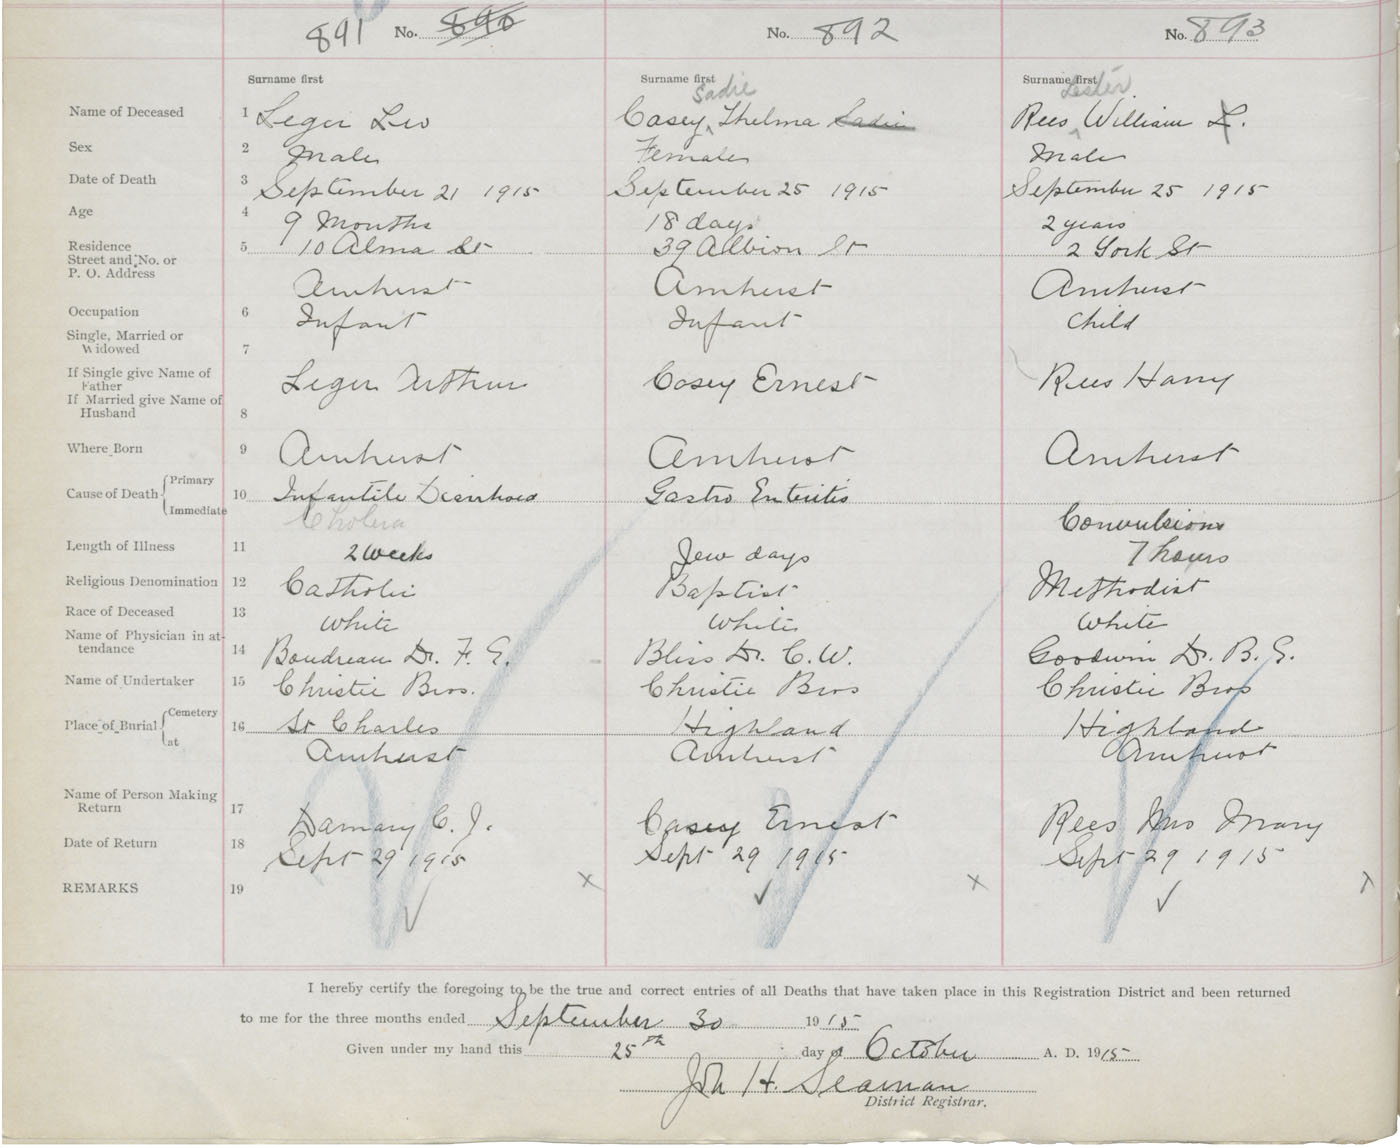 891 No. 890 No. 892 No. 893
Surname first Surname first Surname first
Sadie Lester
Name of Deceased 1 Leger Leo Casey, Thelma Sadie Rees William L.
Sex 2 Male Female Male
Date of Death 3 September 21 1915 September 25 1915 September 25 1915
Age 4 9 Months 18 days 2 years
Residence 5 10 Alma St 39 Albion St 2 York St
Street and No. or
P. O. Address Amherst Amherst Amherst
Occupation 6 Infant Infant Child
Single, Married or
Widowed 7
If Single give Name of
Father Leger Arthur Casey Ernest Rees Harry
If Married give Name of
Husband 8
Where Born 9 Amherst Amherst Amherst
Primary
Cause of Death 10 Infantile Diarrhoea Gastro Enteritis
Immediate Cholera Convulsions
Length of Illness 11 2 weeks Few days 7 hours
Religious Denomination 12 Catholic Baptist Methodist
Race of Deceased 13 White White White
Name of Physician in at-
tendance 14 Boudreau Dr. F. E. Bliss Dr. C. W. Goodwin Dr. B. E.
Name of Undertaker 15 Christie Bros. Christie Bros Christie Bros
Cemetery
Place of Burial 16 St Charles Highland Highland
at Amherst Amherst Amherst
Name of Person Making
Return 17 C. J. Casey Ernest Rees Mrs Mary
Date of Return 18 Sept 29 1915 Sept 29 1915 Sept 29 1915
REMARKS 19
I hereby certify the foregoing to be the true and correct entries of all Deaths that have taken place in this Registration District and been returned
to me for the three months ended September 30 1915
Given under my hand this 25th day of October A. D. 1915
Jon H. Seaman
District Registrar.